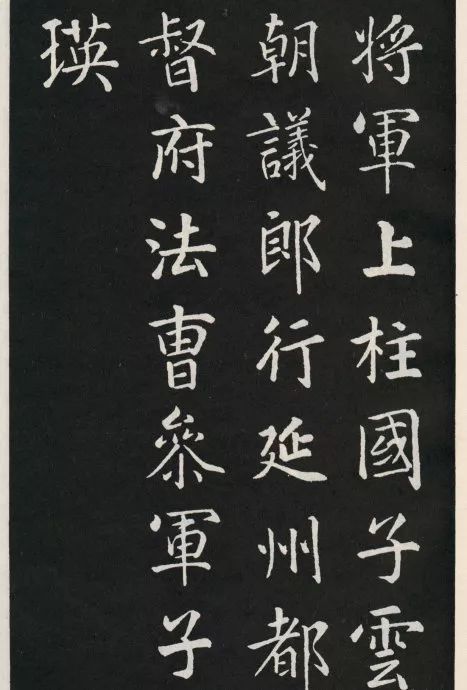 將軍上柱國子雲
朝議郎行延州都
督府法曹參軍子
瑛